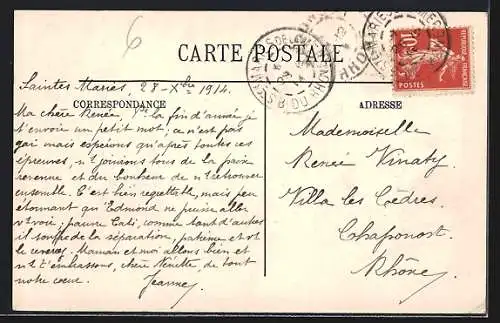 6
CARTE POSTALE
Saintes Maries, 28 - Xbre 1914.
CORRESPONDANCE
ADRESSE
Ma chère Renée, la fin d'année je
t'envoie un petit mot; ce n'est pas
gai mais espérons qu'après toutes ces
épreuves, n/ jouirons tous de la paix
revenue et du bonheur de n/ retrouver
ensemble. C'est bien regrettable, mais peu
étonnant que Edmond ne puisse aller
v/ voir; pauvre Cati, comme tant d'autres
il souffre de la séparation,
Maman et moi allons bien et
n/ t'embrassons, chère Nénette, de tout
notre coeur. Jeanne,
Mademoiselle
Renée Vinaty
Villa les Cèdres
Rhône
REPUBLIQUE FRANCAISE
10